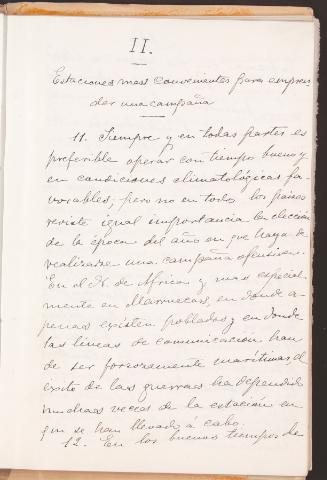 II.
Estaciones mas convenientes para empren-
der una campaña
11. Siempre y en todas partes es
preferible operar con tiempo bueno y
en condiciones climatológicas fa-
vorables; pero no en todos los paises
reviste igual importancia la eleccion
de la época del año en que haya de
realizarse una campaña ofensiva.
En el N. de Africa y mas especial-
mente en Marruecos, en donde a-
penas existen poblados y en donde
las lineas de comunicación han
de ser forzosamente maritimas, el
exito de las guerras ha dependido
muchas veces de la estación en
que se han llevado á cabo.
12. En los buenos tiempos de